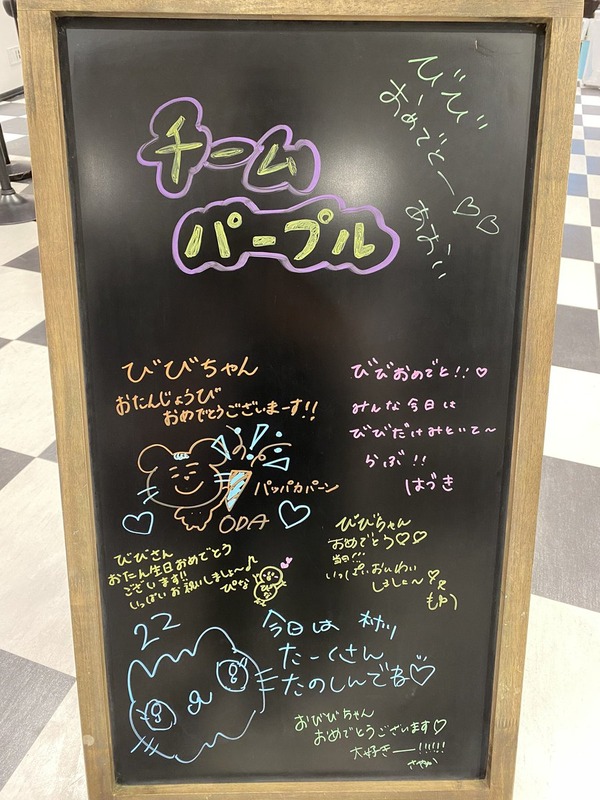 チーム
パープル
びび
おめでとー♡♡
あおい
びびちゃん
おたんじょうび
おめでとうございまーす!!
パッパカパーン
ODA
びびおめでと!!♡
みんな今日は
びびだけみといて〜
らぶ!!
はづき
びびちゃん
おめでとう♡♡
当日!!!
いっぱいおいわい
しましょ〜
びびさん
おたん生日おめでとう
ございます!!
いっぱいお祝いしましょ〜♪
ぴな
22
今日は
たーくさん
たのしんでね♡
おびびちゃん
おめでとうございます♡
大好きー!!!!!!